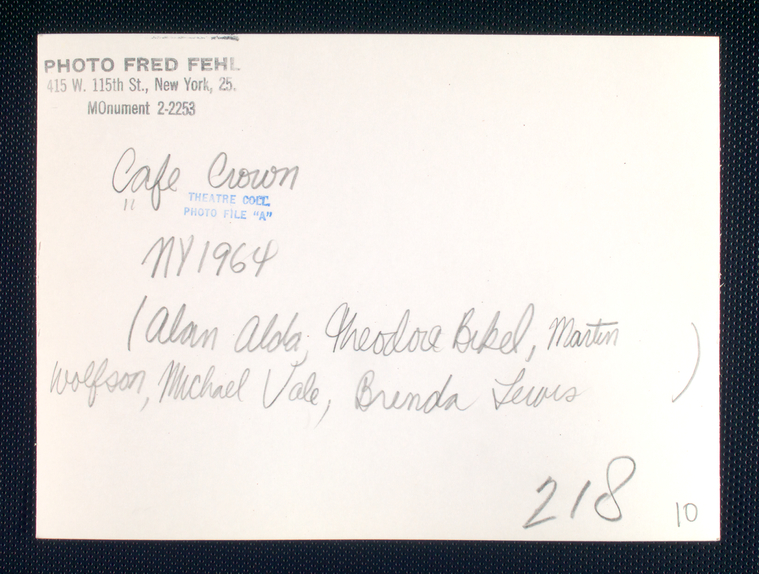 PHOTO FRED FEHL
415 W. 115th St., New York, 25.
MOnument 2-2253
Cafe Crown
"
THEATRE COLL.
PHOTO FILE "A"
NY 1964
(Alan Alda, Theodore Bikel, Martin
Wolfson, Michael Vale, Brenda Lewis)
218
10